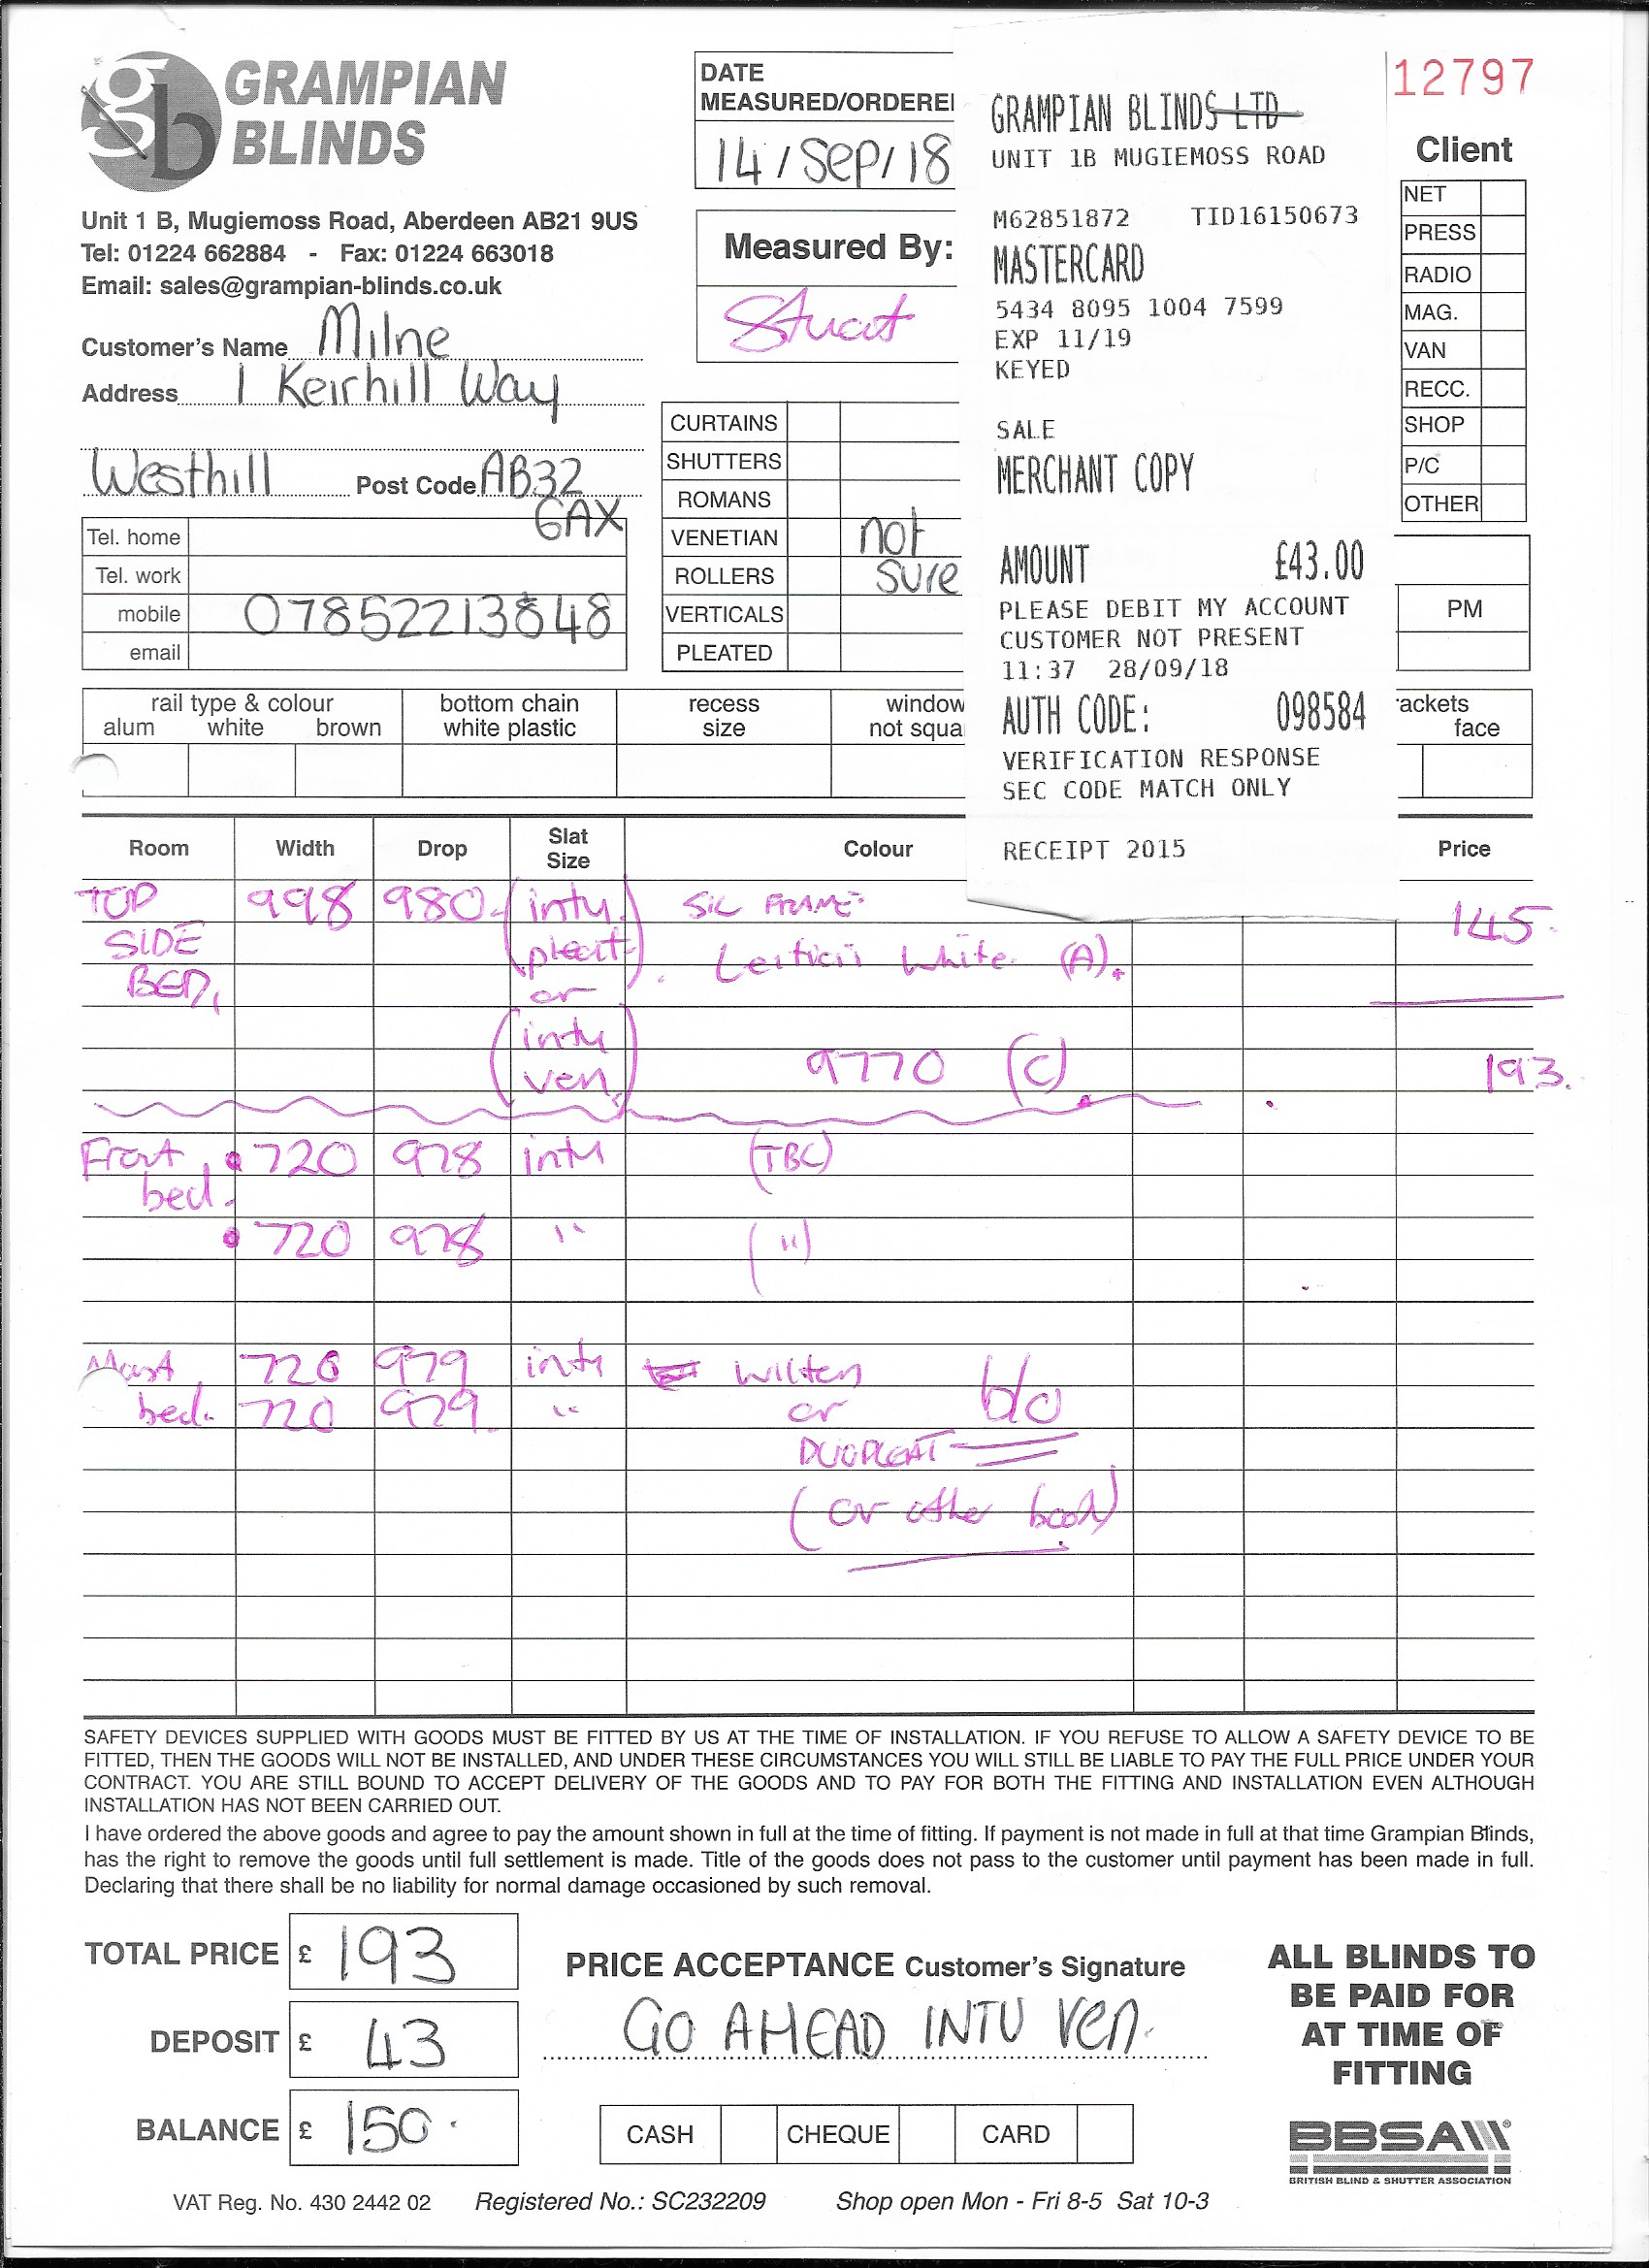 GRAMPIAN
BLINDS
Unit 1 B, Mugiemoss Road, Aberdeen AB21 9US
Tel: 01224 662884 - Fax: 01224 663018
Email: sales@grampian-blinds.co.uk
Customer's Name Milne
Address 1 Keirhill Way
Westhill Post Code AB32
6AX
Tel. home
Tel. work
mobile 07852213848
email
DATE
MEASURED/ORDERE
14/Sep/18
Measured By:
Stuart
CURTAINS
SHUTTERS
ROMANS
VENETIAN not
ROLLERS sure
VERTICALS
PLEATED
GRAMPIAN BLINDS LTD
UNIT 1B MUGIEMOSS ROAD
M62851872 TID16150673
MASTERCARD
5434 8095 1004 7599
EXP 11/19
KEYED
SALE
MERCHANT COPY
AMOUNT £43.00
PLEASE DEBIT MY ACCOUNT
CUSTOMER NOT PRESENT
11:37 28/09/18
AUTH CODE: 098584
VERIFICATION RESPONSE
SEC CODE MATCH ONLY
RECEIPT 2015
12797
Client
NET
PRESS
RADIO
MAG.
VAN
RECC.
SHOP
P/C
OTHER
PM
rail type & colour bottom chain recess window ackets
alum white brown white plastic size not squa face
Room Width Drop Slat Size Colour Price
TOP 998 980 (intu SIL FRAME. 145
SIDE pleat) Leiticii White (A).
BED, or
(intu
ven) 9770 (C) 193.
Front 720 978 intu (TBC)
bed.
720 978 " (")
Mast 720 979 intu Wilten b/o
bed. 720 979 " or
DUOPLEAT
(or other book)
SAFETY DEVICES SUPPLIED WITH GOODS MUST BE FITTED BY US AT THE TIME OF INSTALLATION. IF YOU REFUSE TO ALLOW A SAFETY DEVICE TO BE
FITTED, THEN THE GOODS WILL NOT BE INSTALLED, AND UNDER THESE CIRCUMSTANCES YOU WILL STILL BE LIABLE TO PAY THE FULL PRICE UNDER YOUR
CONTRACT. YOU ARE STILL BOUND TO ACCEPT DELIVERY OF THE GOODS AND TO PAY FOR BOTH THE FITTING AND INSTALLATION EVEN ALTHOUGH
INSTALLATION HAS NOT BEEN CARRIED OUT.
I have ordered the above goods and agree to pay the amount shown in full at the time of fitting. If payment is not made in full at that time Grampian Blinds,
has the right to remove the goods until full settlement is made. Title of the goods does not pass to the customer until payment has been made in full.
Declaring that there shall be no liability for normal damage occasioned by such removal.
TOTAL PRICE £ 193
DEPOSIT £ 43
BALANCE £ 150.
PRICE ACCEPTANCE Customer's Signature
GO AHEAD INTU Ven.
CASH CHEQUE CARD
ALL BLINDS TO
BE PAID FOR
AT TIME OF
FITTING
BBSA
BRITISH BLIND & SHUTTER ASSOCIATION
VAT Reg. No. 430 2442 02 Registered No.: SC232209 Shop open Mon - Fri 8-5 Sat 10-3